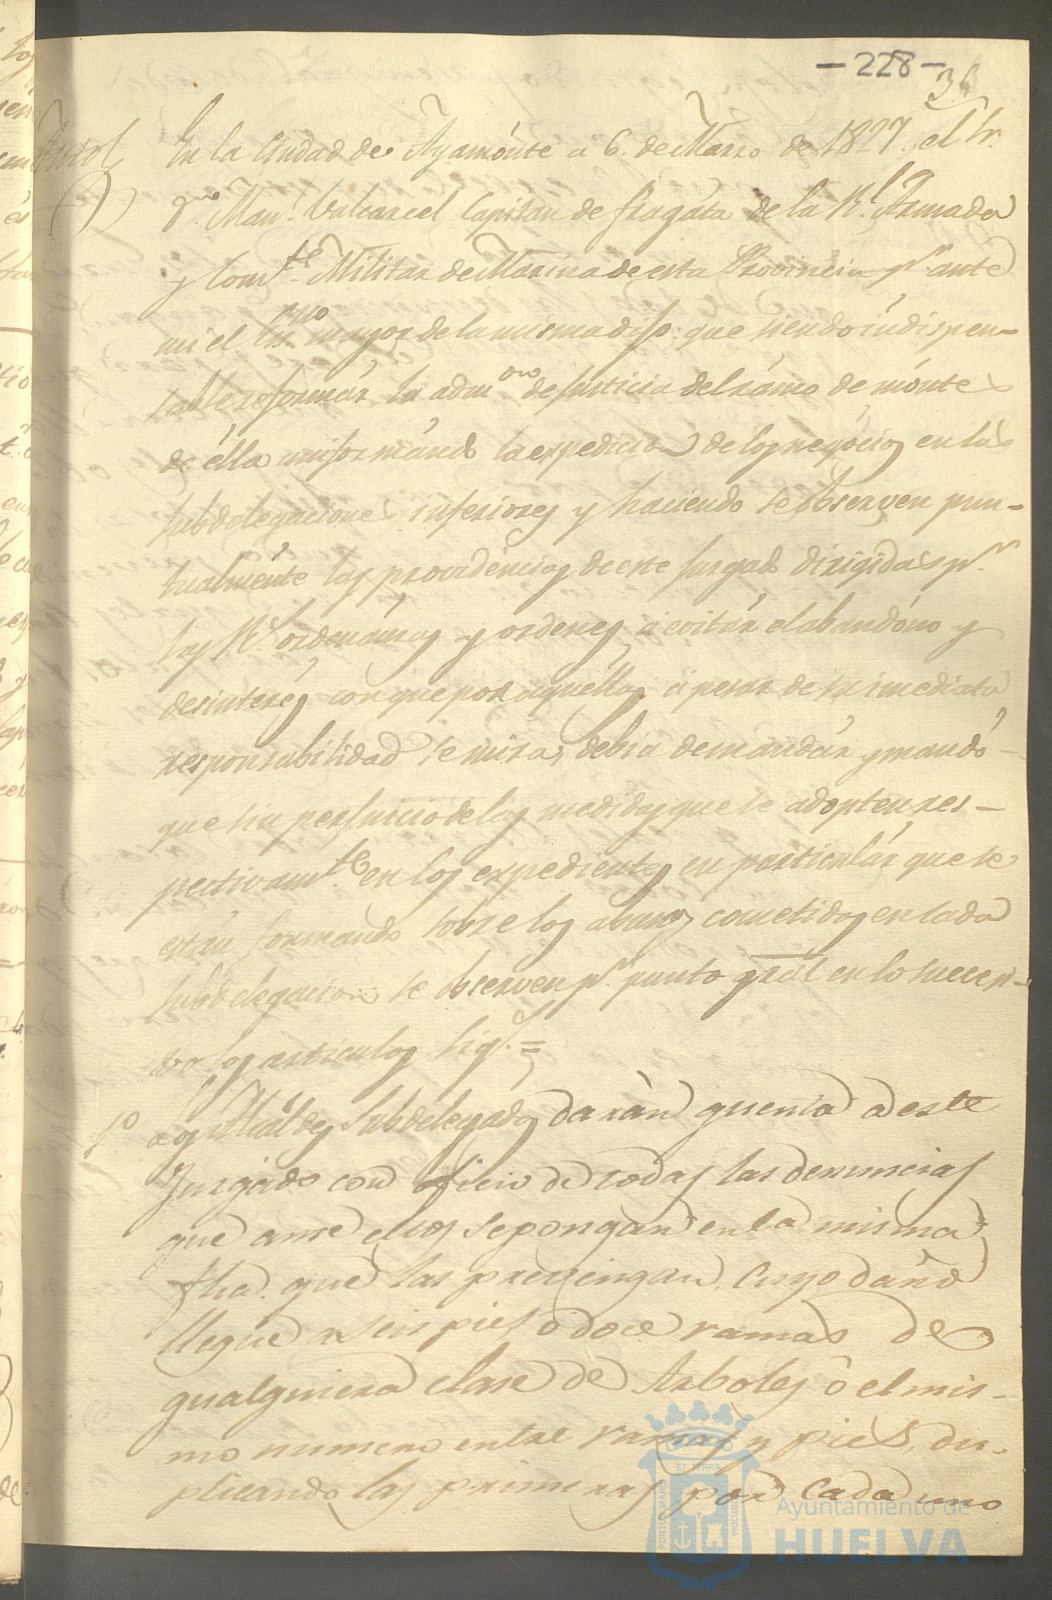 -228-
36
Auto
En la Ciudad de Ayamónte a 6. de Marzo de 1827. el Sr.
Dn. Manl. Valcarcel Capitan de fragáta de la Rl. Armada
y Comte. Militar de Marina de esta Provincia pr. ante
mi el Esno. mayor de la misma dijo: que siendo indispen-
sable reformár la admon. de justicia del rámo de mónte
de élla uniformándo la expedicion de los negócios en las
subdelegaciones inferiores y haciendo se observen pun-
tualménte las providéncias de este juzgado dirigidas pr.
las Rs. ordenánzas y ordenes á evitár el abandóno y
desinterés con que por aquéllas á pesar de su imediata
responsabilidad se mira, debia de mandár y mandó
que sin perjuicio de las medidas que se adopten res-
pectivamte. en los expedientes en particulár que se
están formando sobre los abusos cometidos en cada
subdelegacion se observen pr. punto gral en lo succesi-
vo los articulos sigs. =
1º Los Alcaldes Subdelegados darán quenta a este
Juzgado con oficio de todas las denuncias
que ante ellos se pongan en la misma
fha. que las prevengan, cuyo daño
llegue a seis pies o doce ramas de
qualquiera clase de Arboles ô el mis-
mo numero entre ramas y pies, du-
plicando las primeras por cada uno
PORTUS MARIS
ET TERRAE
CUSTODIA
Ayuntamiento de
HUELVA